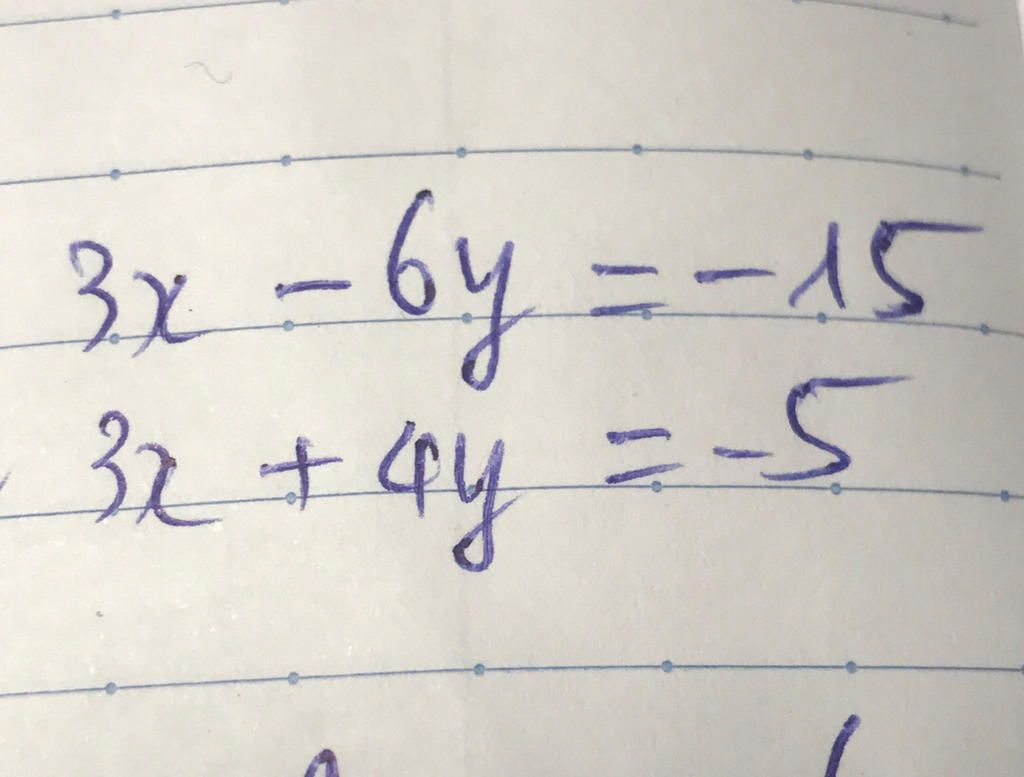 3x - 6y = -15
3x + 4y = -5